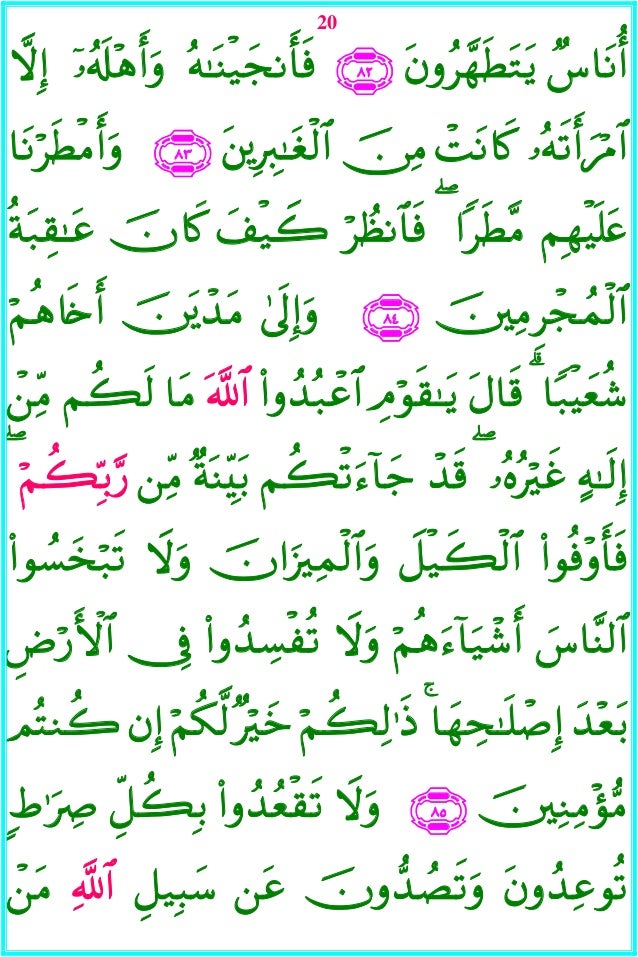 20
أُنَاسٌ يَتَطَهَّرُونَ ٨٢ فَأَنجَيْنَـٰهُ وَأَهْلَهُۥٓ إِلَّا
ٱمْرَأَتَهُۥ كَانَتْ مِنَ ٱلْغَـٰبِرِينَ ٨٣ وَأَمْطَرْنَا
عَلَيْهِم مَّطَرًا ۖ فَٱنظُرْ كَيْفَ كَانَ عَـٰقِبَةُ
ٱلْمُجْرِمِينَ ٨٤ وَإِلَىٰ مَدْيَنَ أَخَاهُمْ
شُعَيْبًا ۗ قَالَ يَـٰقَوْمِ ٱعْبُدُوا۟ ٱللَّهَ مَا لَكُم مِّنْ
إِلَـٰهٍ غَيْرُهُۥ ۖ قَدْ جَآءَتْكُم بَيِّنَةٌ مِّن رَّبِّكُمْ ۖ
فَأَوْفُوا۟ ٱلْكَيْلَ وَٱلْمِيزَانَ وَلَا تَبْخَسُوا۟
ٱلنَّاسَ أَشْيَآءَهُمْ وَلَا تُفْسِدُوا۟ فِى ٱلْأَرْضِ
بَعْدَ إِصْلَـٰحِهَا ۚ ذَٰلِكُمْ خَيْرٌ لَّكُمْ إِن كُنتُم
مُّؤْمِنِينَ ٨٥ وَلَا تَقْعُدُوا۟ بِكُلِّ صِرَٰطٍ
تُوعِدُونَ وَتَصُدُّونَ عَن سَبِيلِ ٱللَّهِ مَنْ